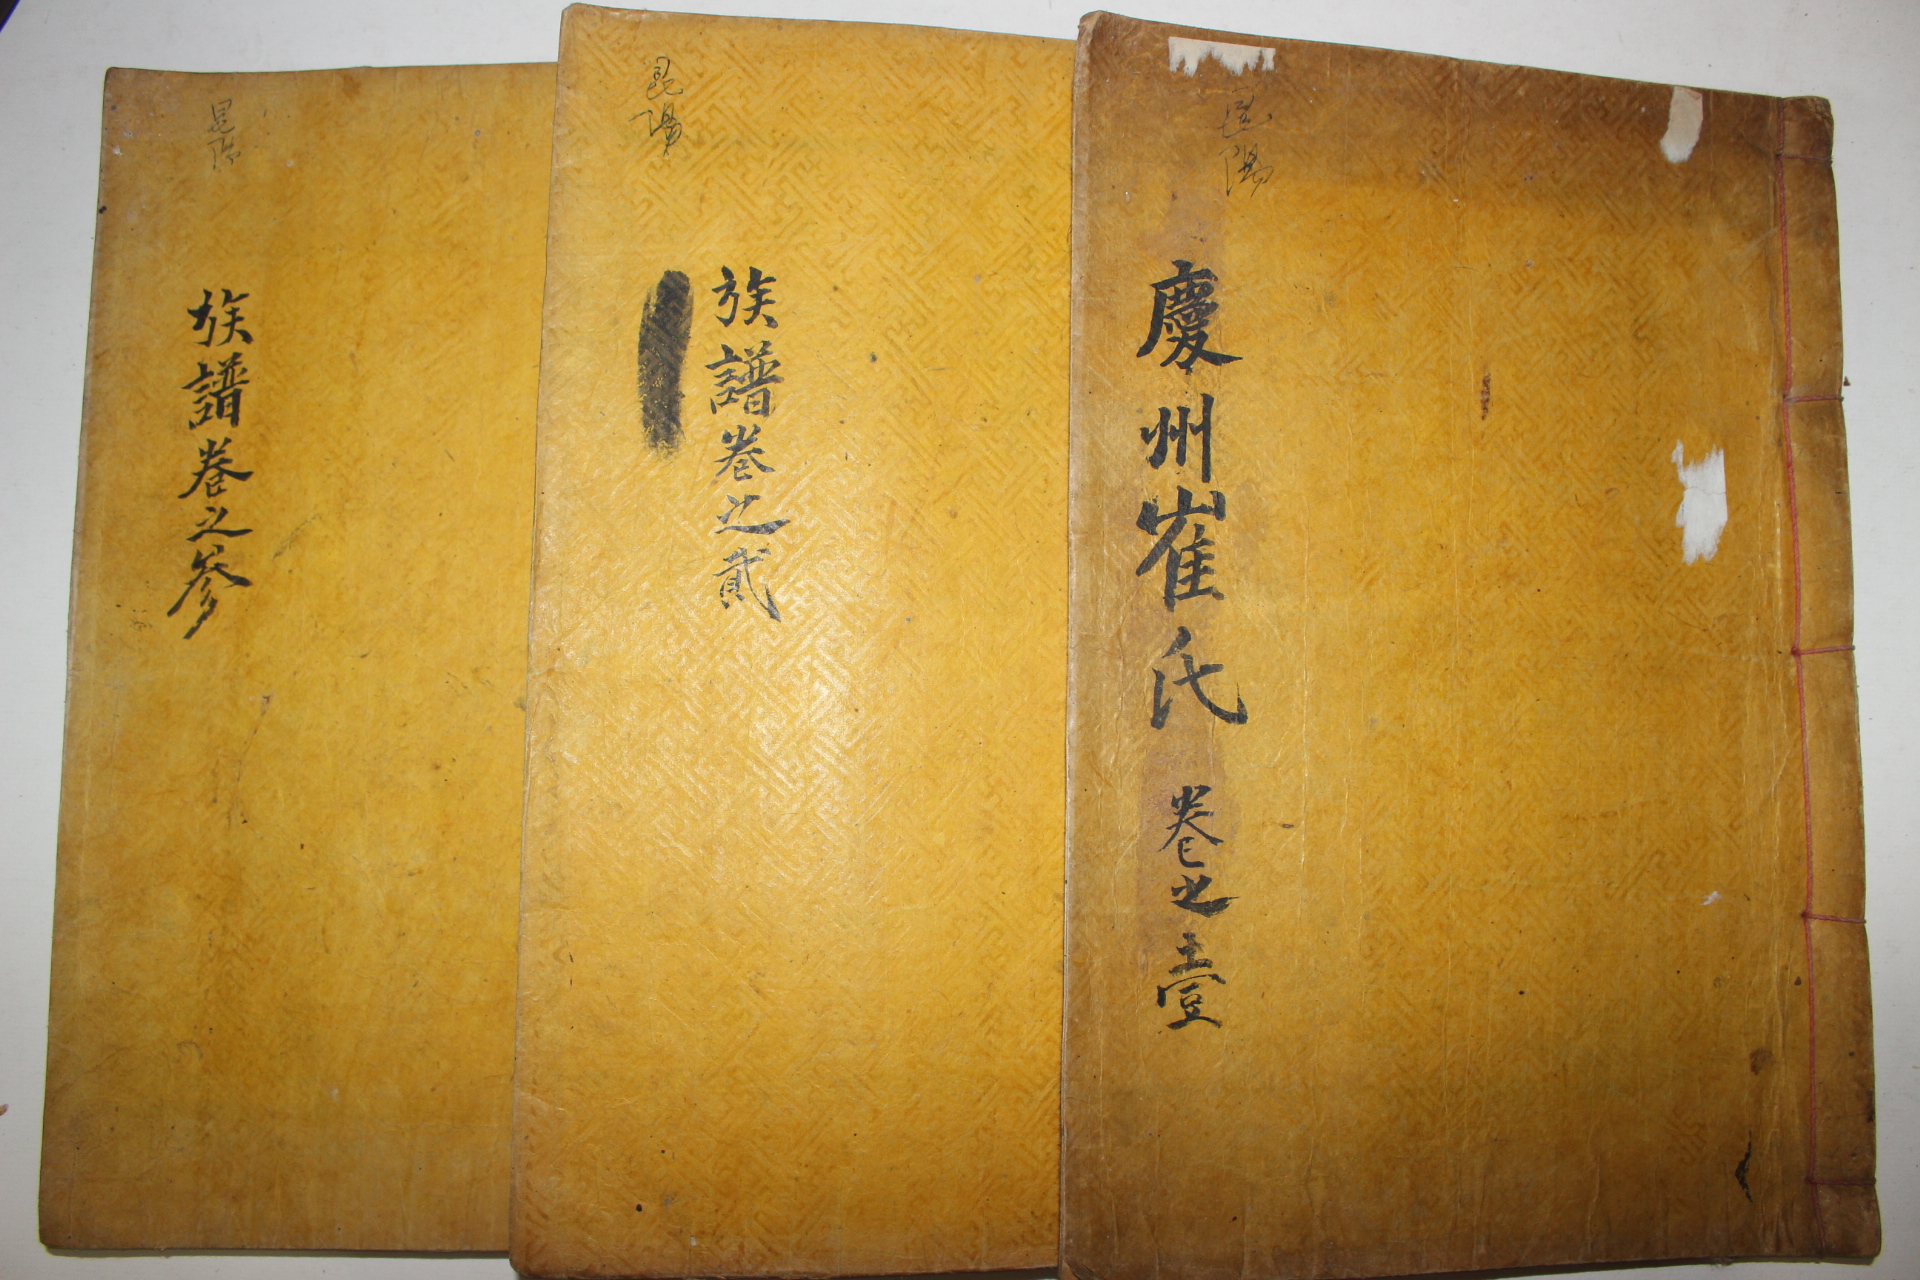 昆陽
慶州崔氏 卷之壹
昆陽
族譜卷之貳
昆陽
族譜卷之參